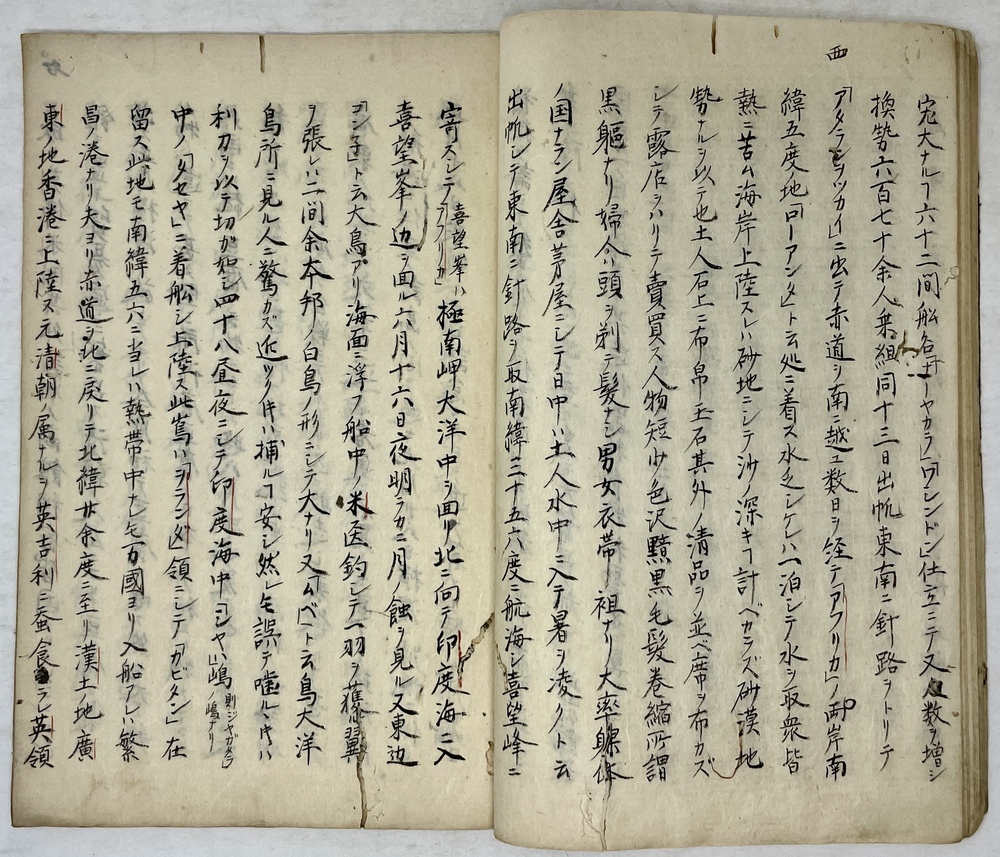 西
宏大ナルヿ六十二間船台廾一ヤカラ「ワシントン」仕立ニテ又人数ヲ増シ
換勢六百七十余人乗組同十三日出帆東南ニ針路ヲトリテ
「アタラランツカイ」ニ出テ赤道ヲ南越ユ数日ヲ経テ「アフリカ」ノ西岸南
緯五度ノ地「ローアンタ」ト云処ニ着ス水乏シケレハ一泊シテ水ヲ取衆皆
熱ニ苦ム海岸上陸スレハ砂地ニシテ沙深キヿ計ベカラズ砂漠地
勢ナルヲ以テ也土人石上ニ布帛玉石其外ノ清品ヲ並ベ席ヲ布カズ
シテ露店ヲハリテ賣買ス人物短少色沢黯黒毛髪巻縮所謂
黒軀ナリ婦人ハ頭ヲ剃テ髪ナシ男女衣帯ノ祖ナリ大率躶体
ノ国ナラン屋舎茅屋ニシテ日中ハ土人水中ニ入テ暑ヲ凌クト云
出帆シテ東南ニ針路ヲ取南緯三十五六度ニ航海シ喜望峰ニ
寄スシテ喜望峯ハ「アフリカ」極南岬大洋中ヲ面リ北ニ向テ印度海ニ入
喜望峯ノ辺ヲ面ル六月十六日夜明ラカニ月蝕ヲ見ル又東辺
「コンチ」ト云大鳥アリ海面ニ浮フ船中ノ米医釣シテ一羽ヲ獲翼
ヲ張レハ二間余本邦ノ白鳥ノ形ニシテ大ナリ又「ムベ」ト云鳥大洋
鳥所ニ見ル人ニ驚カズ近ツク𪜈ハ捕ルヿ安シ然レ𪜈誤テ噛ル丶𪜈ハ
利刀ヲ以テ切カ如シ四十八昼夜ニシテ印度海中「シヤハ」嶋則ジヤガタラノ嶋ナリ
中ノ「ハタヒヤ」ニ着船シ上陸ス此嶌ハ「ヲランダ」領ニシテ「カピタン」在
留ス此地モ南緯五六ニ当レハ熱帯中ナレ𪜈万國ヨリ入船アレハ繁
昌ノ港ナリ夫ヨリ赤道ヲ北ニ戻リテ北緯廿余度ニ至リ漢土地廣
東ノ地香港ニ上陸ス元清朝ノ属ナルヲ英吉利ニ蚕食ラレ英領